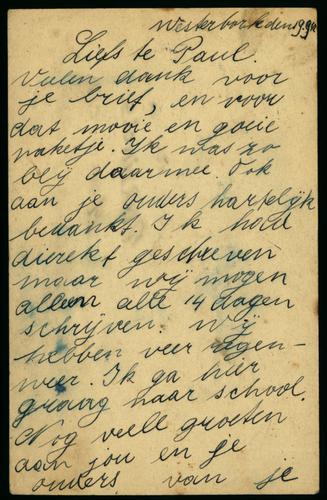 Westerbork den 19.9.
Liefste Paul.
Vulen dank voor
je brief, en voor
dat mooie en goeie
paketje. Ik was zo
blij daarmee. Ook
aan je ouders hartelijk
bedankt. Ik had
dierekt geschreven
maar wij mogen
alleen alle 14 dagen
schrijven. Wij
hebben veer regen-
weer. Ik ga hier
graag naar school.
Nog veele groeten
aan jou en je
ouders van je